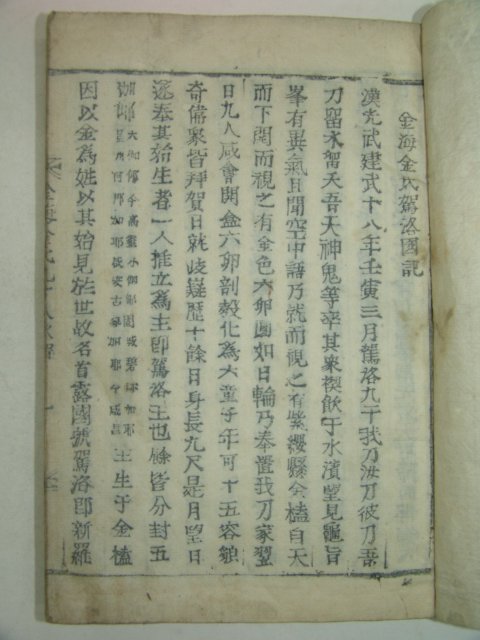 金海金氏駕洛國記
漢光武建武十八年壬寅三月駕洛九干我刀汝刀彼刀吾
刀留水留天吾天神鬼等率其衆禊飮于水濱望見龜旨
峯有異氣且聞空中語乃就而視之有紫纓縣金榼自天
而下開而視之有金色六卵圓如日輪乃奉置我刀家翌
日九人咸會開盒六卵剖殼化為六童子年可十五容貌
奇偉衆皆拜賀日就岐嶷歷十餘日身長九尺是月望日
遂奉其始生者一人推立為主即駕洛王也餘皆分封五
伽耶 大伽倻今高靈小伽倻固城碧珍伽倻
星州阿那伽耶咸安古寧伽耶今咸昌 主生于金榼
因以金為姓以其始見於世故名首露國號駕洛即新羅